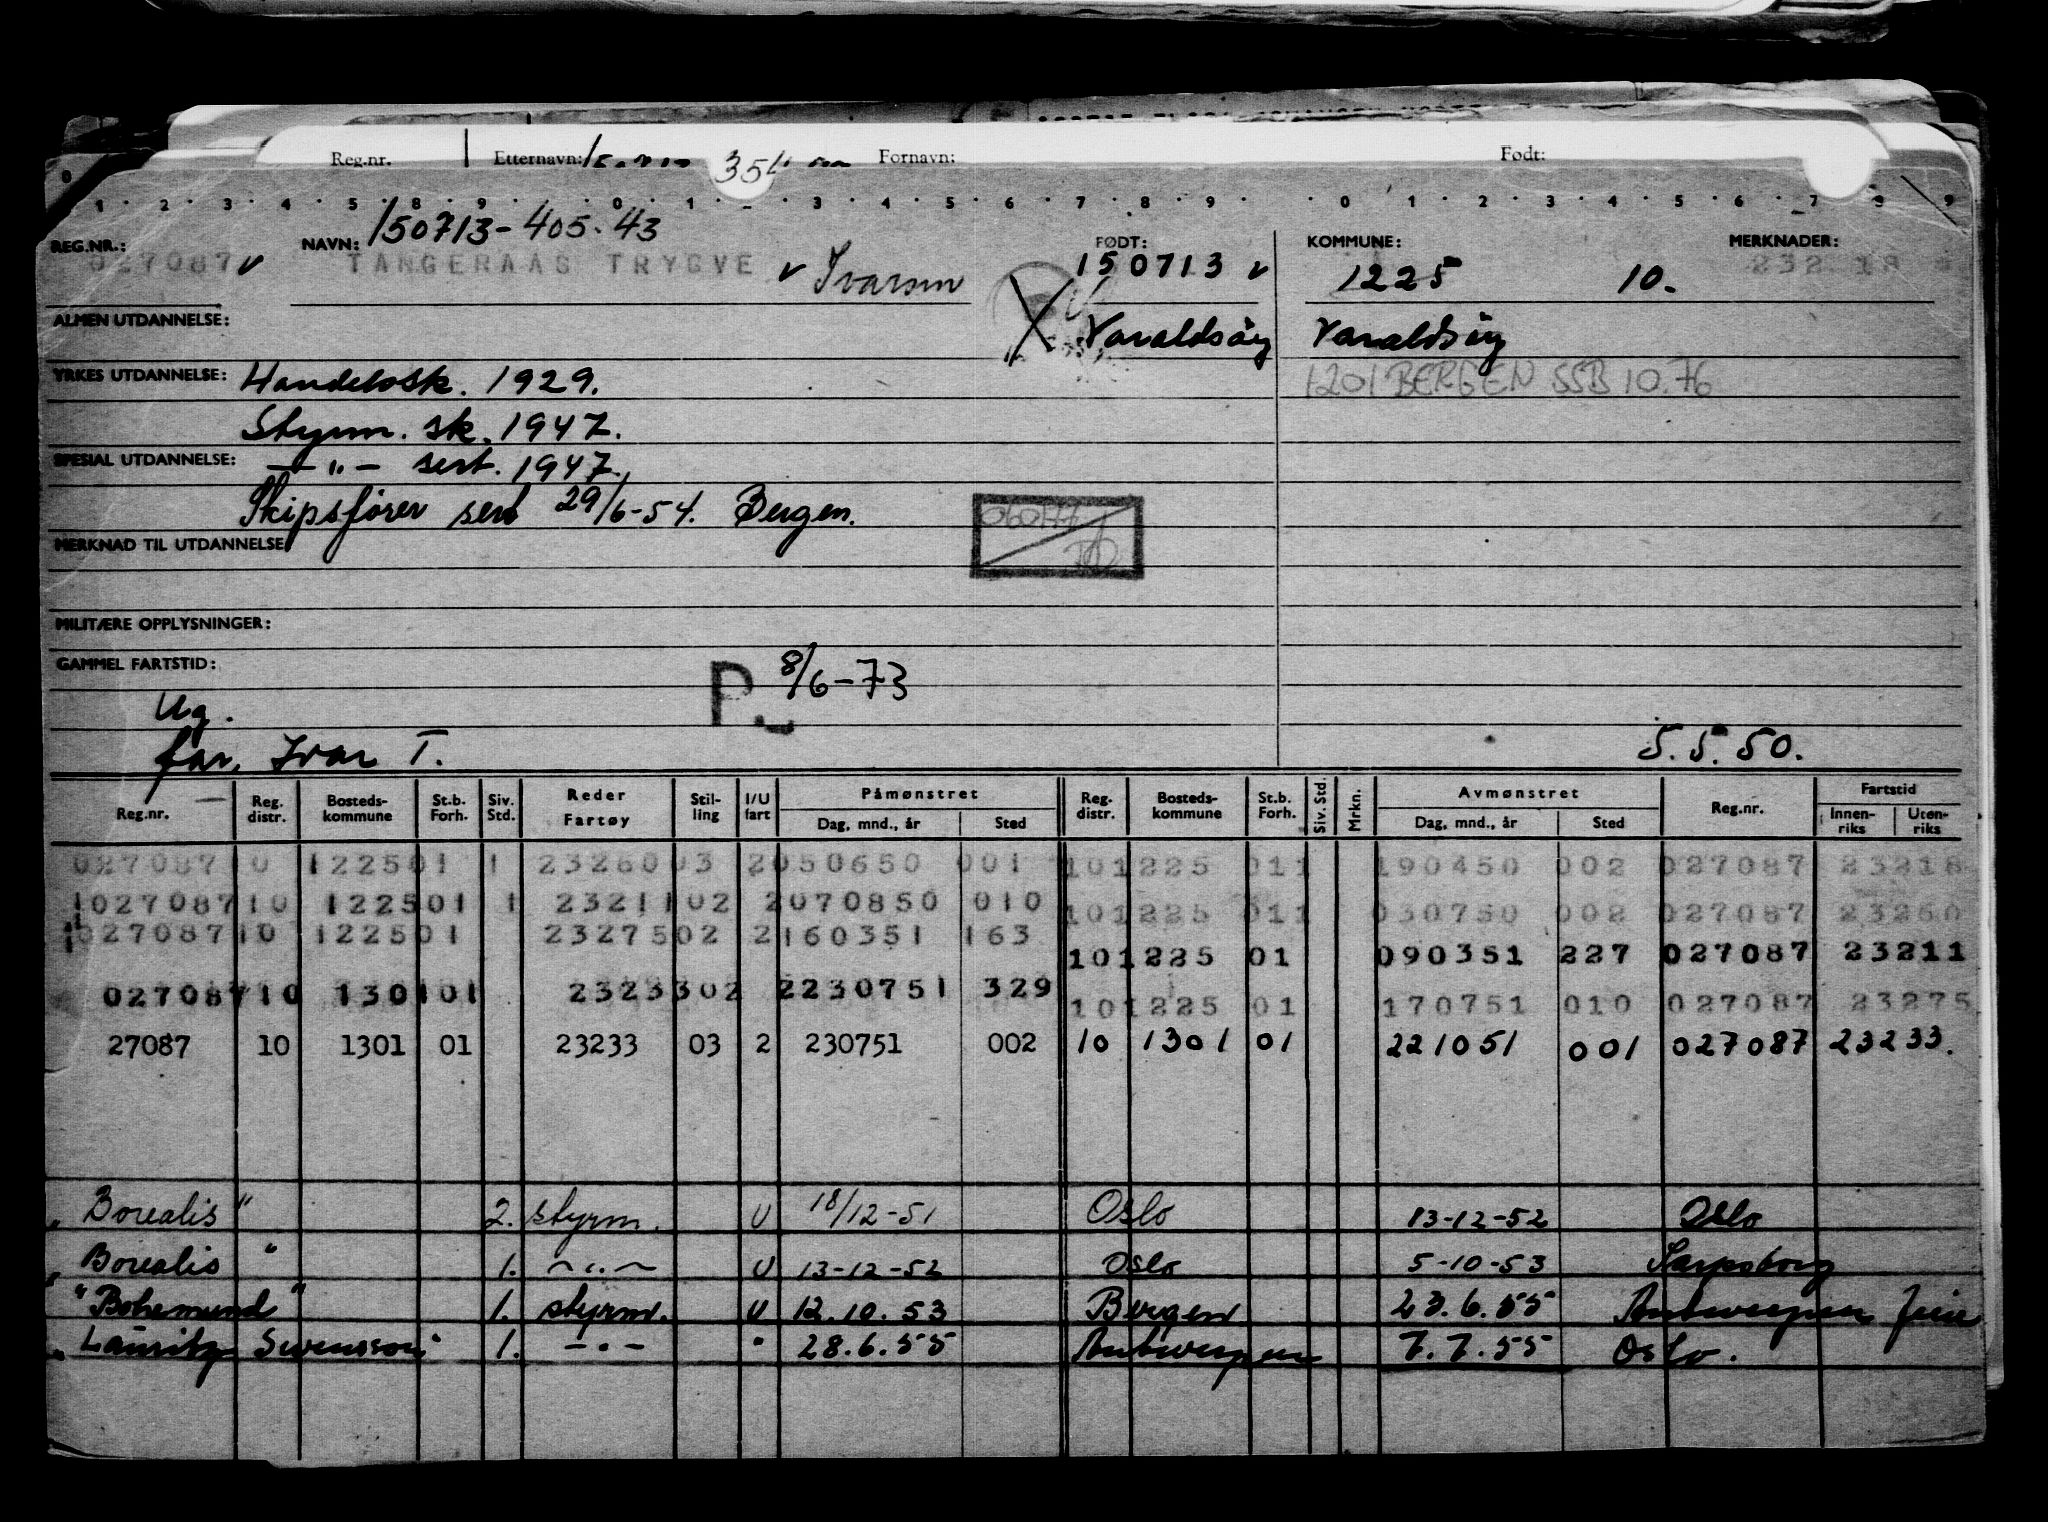 Reg.nr. Etternavn: Fornavn: Født:
1 2 3 4 5 8 9 0 1 3 4 5 6 7 8 9 0 1 2 3 4 5 6 7 8 9
150713-405.43
REG.NR.: NAVN: FØDT: KOMMUNE: MERKNADER:
027087 v TANGERAAS TRYGVE v Ivarson 150713 v 1225 10. 232 18
ALMEN UTDANNELSE: Varaldsöy Varaldsöy
YRKES UTDANNELSE: Handelssk. 1929. 1201 BERGEN SSB 10.76
Styrm. sk. 1947.
SPESIAL UTDANNELSE: —"— sert. 1947.
Skipsfører sert 29/6-54. Bergen.
MERKNAD TIL UTDANNELSE:
MILITÆRE OPPLYSNINGER:
GAMMEL FARTSTID:
P. 8/6-73
Ug.
far, Ivar T. 5.5.50.
Reg.nr. Reg. distr. Bosteds-kommune St.b. Forh. Siv. Std. Reder Fartøy Stil-ling I/U fart Påmønstret Dag, mnd., år Sted Reg. distr. Bosteds-kommune St.b. Forh. Siv. Std. Mrkn. Avmønstret Dag, mnd., år Sted Reg.nr. Fartstid Innen-riks Uten-riks
027087 10 1225 01 1 23260 03 2 050650 001 10 1225 01 1 190450 002 027087 23218
027087 10 1225 01 1 23211 02 2 070850 010 10 1225 01 1 030750 002 027087 23260
027087 10 1225 01 23275 02 2 160351 163 10 1225 01 090351 227 027087 23211
027087 10 1301 01 23233 02 2 230751 329 10 1225 01 170751 010 027087 23275
27087 10 1301 01 23233 03 2 230751 002 10 1301 01 221051 001 027087 23233.
"Borealis" 2. styrm. U 18/12-51 Oslo 13-12-52 Oslo
"Borealis" 1. —"— U 13-12-52 Oslo 5-10-53 Sarpsborg
"Bohemund" 1. styrm. U 12.10.53 Bergen 23.6.55 Antwerpen
"Lauritz Swensson" 1. —"— " 28.6.55 Antwerpen 7.7.55 Oslo.